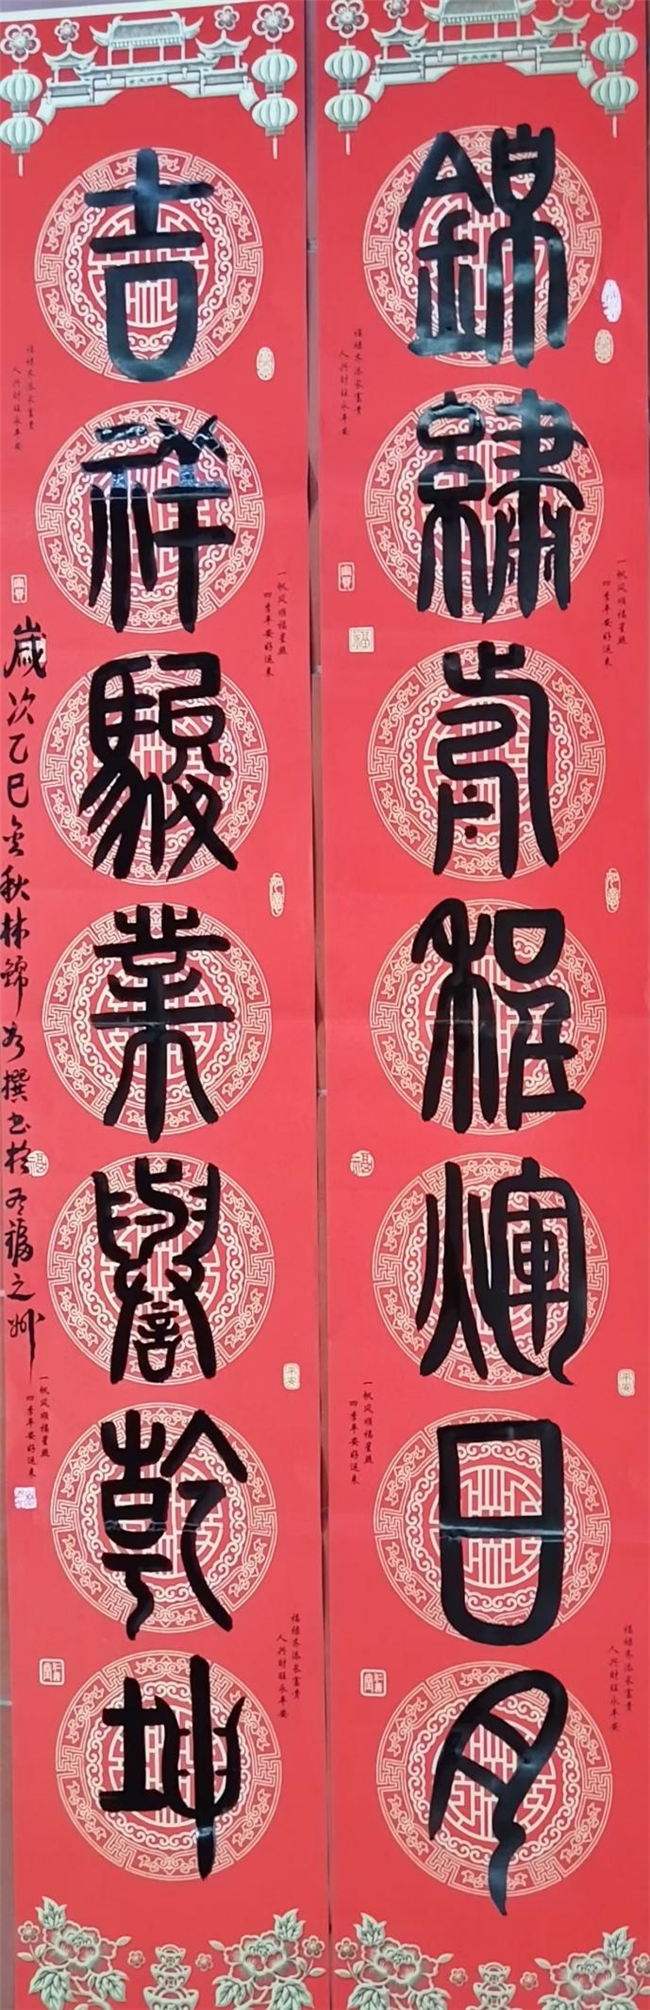 錦繡前程輝日月
福禄寿添长富贵
人兴财旺永平安
一帆风顺福星照
四季平安好运来
一帆风顺福星照
四季平安好运来
福禄寿添长富贵
人兴财旺永平安
吉祥駿業譽乾坤
福禄寿添长富贵
人兴财旺永平安
一帆风顺福星照
四季平安好运来
一帆风顺福星照
四季平安好运来
福禄寿添长富贵
人兴财旺永平安
歲次乙巳金秋林錦撰书於有福之州